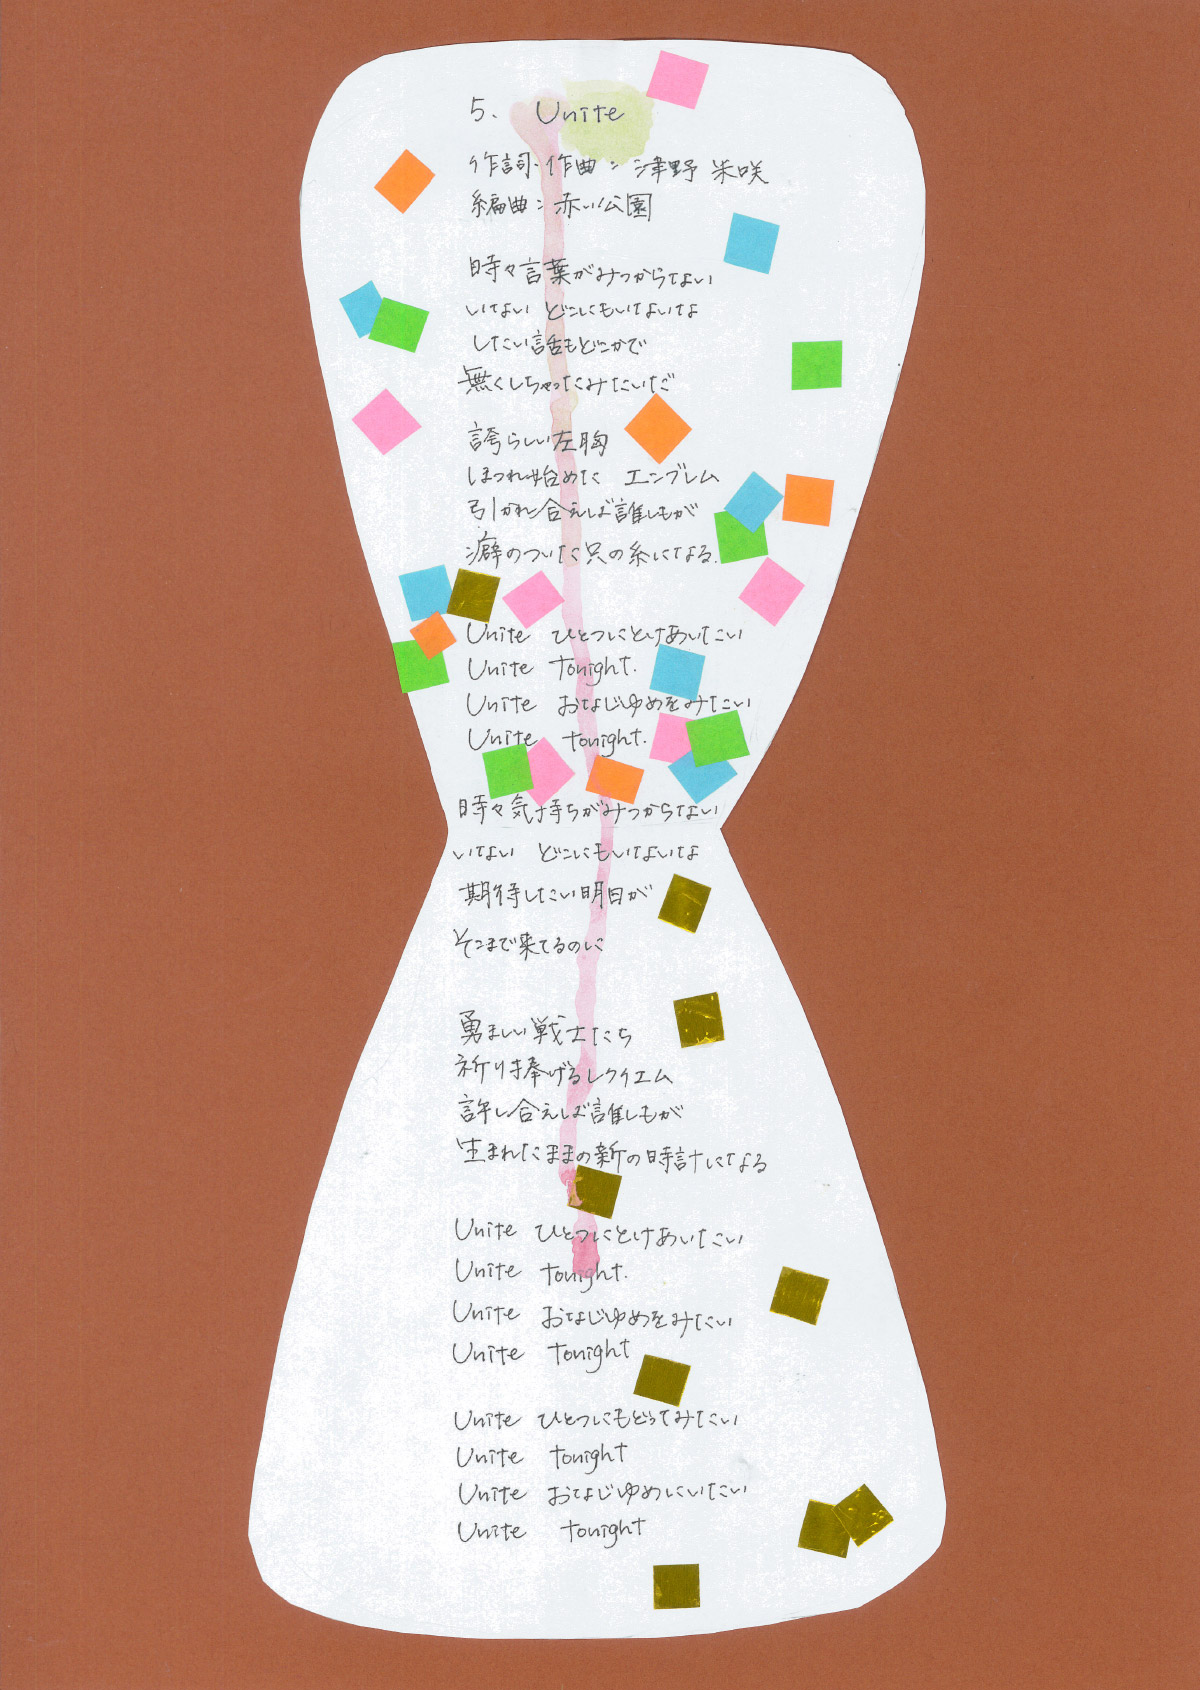 5. Unite
作詞・作曲：津野 米咲
編曲：赤い公園
時々言葉がみつからない
いない どこにもいないな
したい話もどこかで
無くしちゃったみたいだ
誇らしい左胸
ほつれ始めた エンブレム
引かれ合えば誰しもが
癖のついた只の糸になる.
Unite ひとつにとけあいたい
Unite tonight.
Unite おなじゆめをみたい
Unite tonight.
時々気持ちがみつからない
いない どこにもいないな
期待したい明日が
そこまで来てるのに
勇ましい戦士たち
祈り捧げるレクイエム
許し合えば誰しもが
生まれたままの新の時計になる
Unite ひとつにとけあいたい
Unite tonight.
Unite おなじゆめをみたい
Unite tonight
Unite ひとつにもどってみたい
Unite tonight
Unite おなじゆめにいたい
Unite tonight